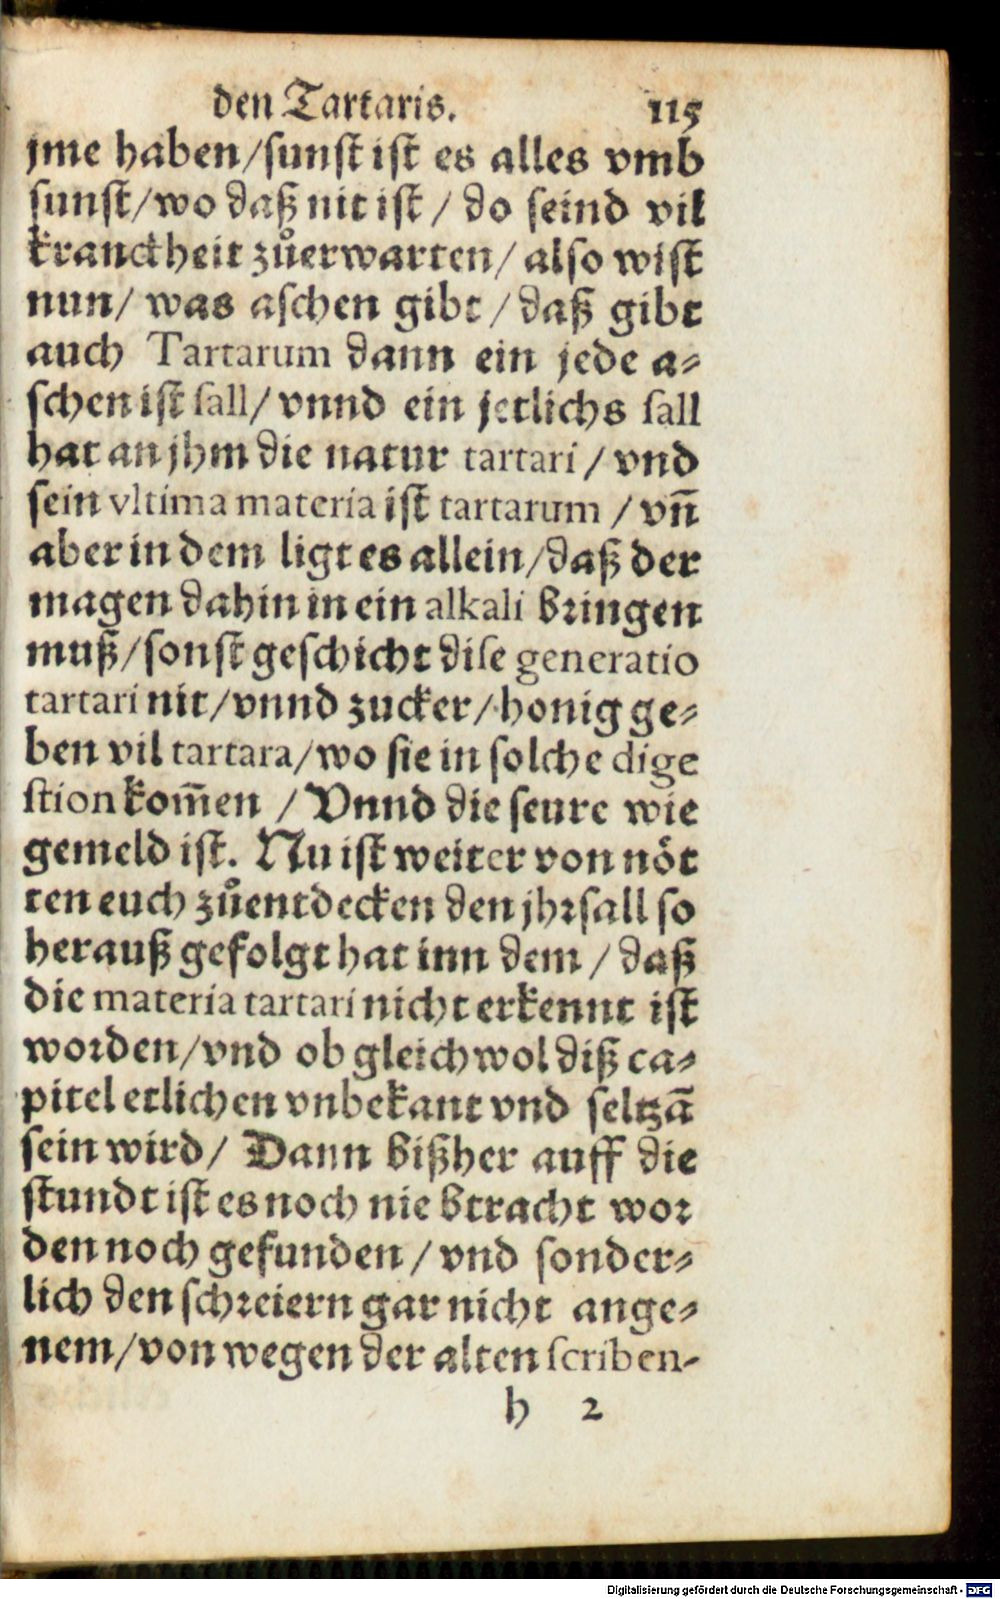 den Tartaris. 115
jme haben/sunst ist es alles vmb
sunst/wo daß nit ist/ do seind vil
kranckheit zůerwarten/ also wist
nun/ was aschen gibt/ daß gibt
auch Tartarum dann ein jede a-
schen ist sall/ vnnd ein jetlichs sall
hat an jhm die natur tartari/ vnd
sein vltima materia ist tartarum/ vñ
aber in dem ligt es allein/daß der
magen dahin in ein alkali bringen
muß/sonst geschicht dise generatio
tartari nit/vnnd zucker/honig ge-
ben vil tartara/wo sie in solche dige
stion kom̃en/ Vnnd die seure wie
gemeld ist. Nu ist weiter von nöt
ten euch zůentdecken den jhrsall so
herauß gefolgt hat inn dem/ daß
die materia tartari nicht erkennt ist
worden/vnd ob gleichwol diß ca-
pitel etlichen vnbekant vnd seltzã
sein wird/ Dann bißher auff die
stundt ist es noch nie btracht wor
den noch gefunden/ vnd sonder-
lich den schreiern gar nicht ange-
nem/von wegen der alten scriben-
h 2
Digitalisierung gefördert durch die Deutsche Forschungsgemeinschaft - DFG